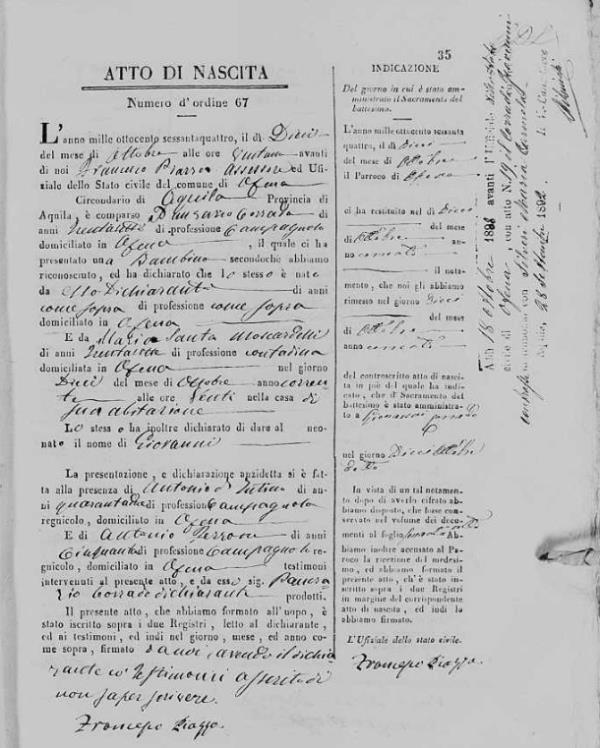 35
ATTO DI NASCITA
Numero d'ordine 67
L'anno mille ottocento sessantaquattro, il dì Dieci
del mese di Ottobre alle ore Ventuna avanti
di noi Francesco Piazza Assessore ed Ufi-
ziale dello Stato civile del comune di Ofena
Circondario di Aquila Provincia di
Aquila, è comparso Pancrazio Corrado di
anni trentasette di professione Campagnolo
domiciliato in Ofena, il quale ci ha
presentato una Bambino secondochè abbiamo
riconosciuto, ed ha dichiarato che lo stesso è nato
da esso Dichiarante di anni
come sopra di professione come sopra
domiciliato in Ofena
E da Maria Santa Moscardelli
di anni trentasette di professione contadina
domiciliata in Ofena nel giorno
Dieci del mese di Ottobre anno corren
te alle ore Venti nella casa di
sua abitazione
Lo stesso ha inoltre dichiarato di dare al neo-
nato il nome di Giovanni
La presentazione, e dichiarazione anzidetta si è fat-
ta alla presenza di Antonio d' di an-
ni quaranta di professione Campagnolo
regnicolo, domiciliato in Ofena
E di Antonio di anni
Cinquanta di professione Campagnolo re-
gnicolo, domiciliato in Ofena testimoni
intervenuti al presente atto, e da esso sig. Pancra
zio Corrado dichiarante prodotti.
Il presente atto, che abbiamo formato all'uopo, è
stato iscritto sopra i due Registri, letto al dichiarante,
ed ai testimoni, ed indi nel giorno, mese, ed anno co-
me sopra, firmato da noi avendo il dichia
rante co' testimoni asserito di
non saper scrivere.
Francesco Piazza
INDICAZIONE
Del giorno in cui è stato am-
ministrato il Sacramento del
battesimo.
L'anno mille ottocento sessanta
quattro, il dì Dieci
del mese di Ottobre
il Parroco di Ofena
ci ha restituito nel dì Dieci
del mese
di Ottobre an-
no
il nota-
mento, che noi gli abbiamo
rimesso nel giorno Dieci
del mese
di Ottobre
anno
del controscritto atto di nasci-
ta in piè del quale ha indi-
cato, che il Sacramento del
battesimo è stato amministra-
to a Giovanni Corrado
nel giorno Dieci Ottobre
detto
In vista di un tal notamen-
to dopo di averlo cifrato ab-
biamo disposto, che fosse con-
servato nel volume dei docu-
menti al foglio
Abbiamo
inoltre accusato al Pa-
roco la ricezione del medesi-
mo, ed abbiamo formato il
presente atto, ch'è stato in-
scritto sopra i due Registri
in margine del corrispondente
atto di nascita, ed indi lo
abbiamo firmato.
L'Ufiziale dello stato civile.
Francesco Piazza
Addì 18 Ottobre 1891 avanti l'Ufiziale dello Stato
civile di Ofena, con atto N. 19 il Corrado Giovanni
matrimonio con Silveri Maria Carmela
Aquila, 28 Settembre 1892
Il Vice Cancelliere